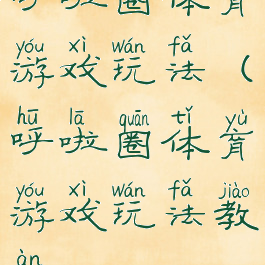 呼啦圈体育
yóu xì wán fǎ
游戏玩法（
hū lā quān tǐ yù
呼啦圈体育
yóu xì wán fǎ jiào
游戏玩法教
àn